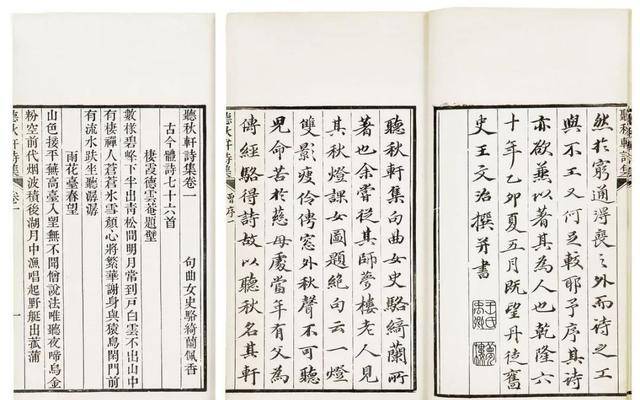 聽秋軒詩集
然於窮通得喪之外而詩之工
與不工又何足較耶予序其詩
亦欲兼以著其為人也乾隆六
十年乙卯夏五月既望丹徒舊
史王文治撰并書
聽秋軒集句曲女史駱綺蘭所
著也余嘗從其師夢樓老人見
其秋燈課女圖題絕句云一燈
雙影瘦伶俜窓外秋聲不可聽
兒命苦於慈母處當年有父為
傳經駱得詩故以聽秋名其軒
聽秋軒詩集
序一
聽秋軒詩集卷一
句曲女史駱綺蘭佩香
古今體詩七十六首
棲霞德雲菴題壁
數椽碧峰下半出青松間明月常到戶白雲不出山中
有棲禪人蒼蒼冰雪顏心將繁華謝身與猿鳥閑門前
有流水趺坐聽潺潺
雨花臺春望
山色接平蕪高臺入望無不聞僧說法唯聽夜啼烏金
粉空前代烟波積後湖月中漁唱起野艇出菰蒲
聽秋軒詩集
卷一
一